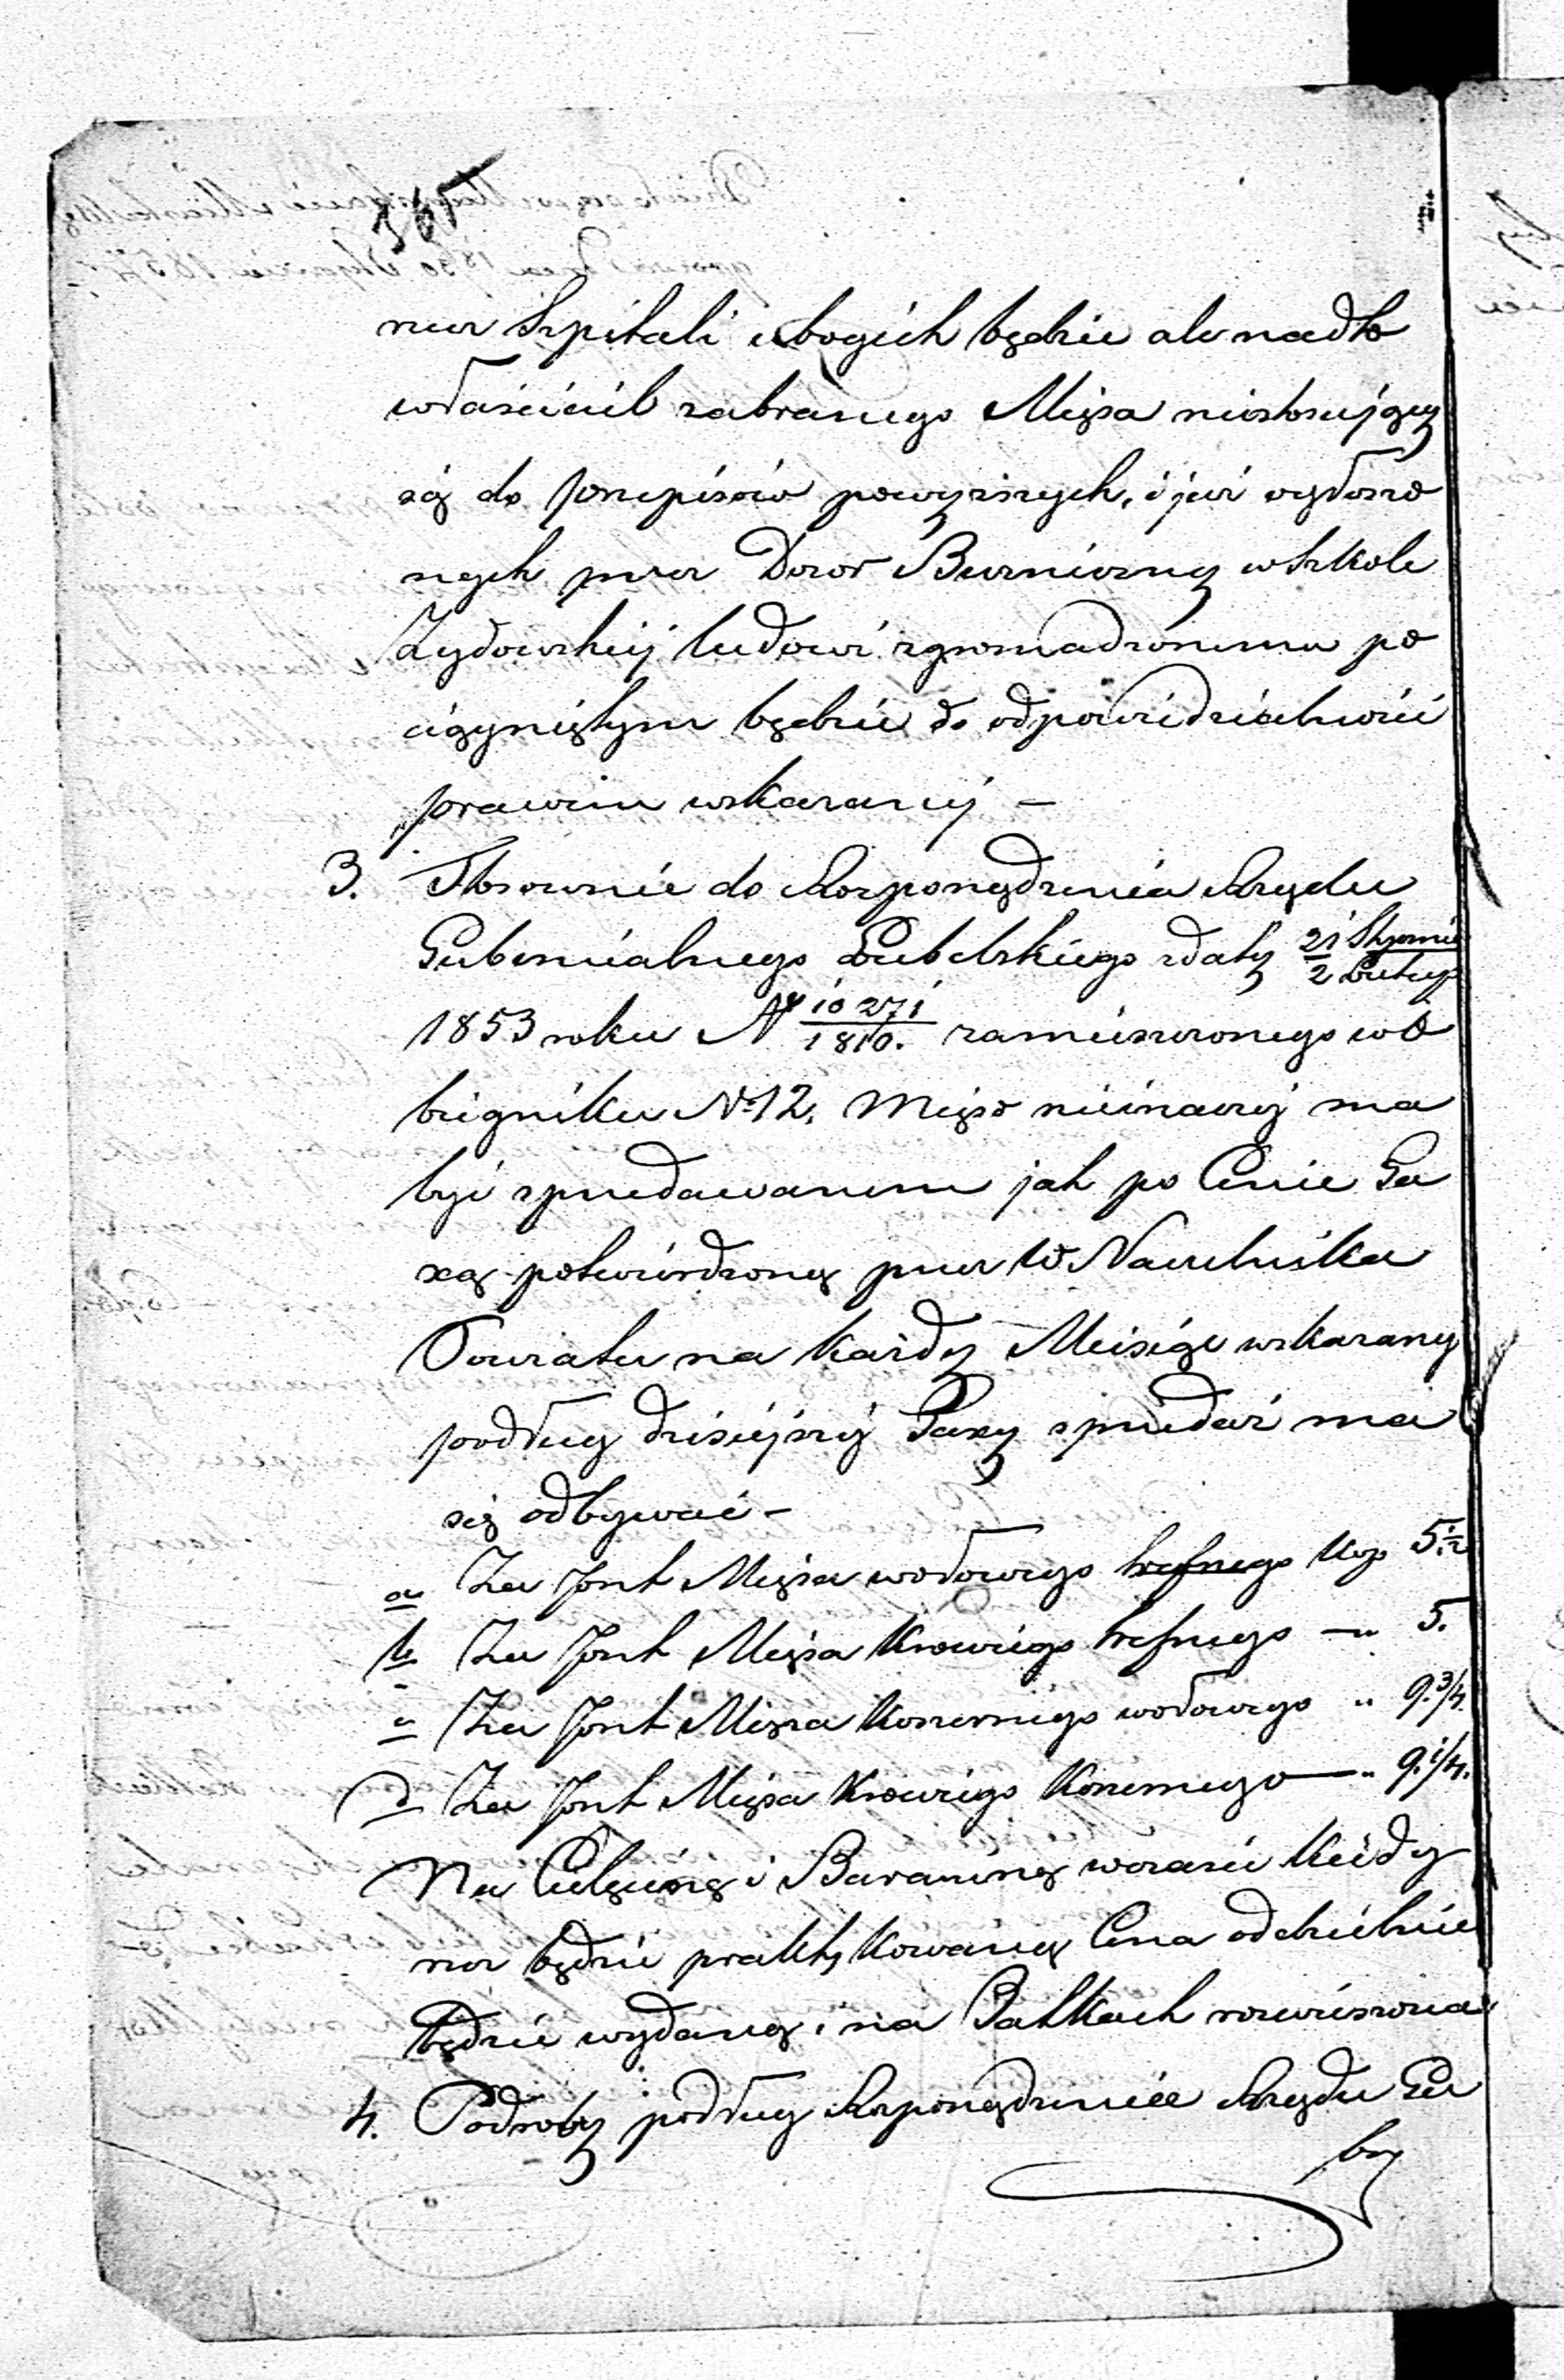 rzecz Szpitali ubogich będzie ale nadto
właściciel zabranego Mięsa niestosujący
się do przepisów powyższych, i już ogłoszo
nych przez Dozór Bużniczny w Szkole
Żydowskiej ludowi zgromadzonemu po
ciągniętym będzie do odpowiedzialności
prawem wskazanej –
3. Stosownie do Rozporządzenia Rządu
Gubernialnego Lubelskiego z daty 21 Stycznia / 2 Lutego
1853 roku N 10271 / 1810. zamieszczonego w D
zienniku N 12, Mięso nieinaczej ma
być sprzedawanem jak po Cenie Ta
xą potwierdzoną przez W Naczelnika
Powiatu na każdy Miesiąc wskazany
podług dzisiejszej Taxy sprzedaż ma
się odbywać –
a Za font Mięsa wołowego trefnego Kop 5 1/2
b Za font Mięsa Krowiego trefnego – " 5.
c Za font Mięsa Koszernego wołowego " 9. 3/4.
d Za font Mięsa Krowiego Koszernego — " 9. 1/4.
Na Cielęcinę i Baraninę w czasie kiedy
rznięcie będzie praktykowaną Cena oddzielnie
będzie wydaną, i na Jatkach rozwieszona
4. Podroby podług Rozporządzenia Rządu Gu
ber